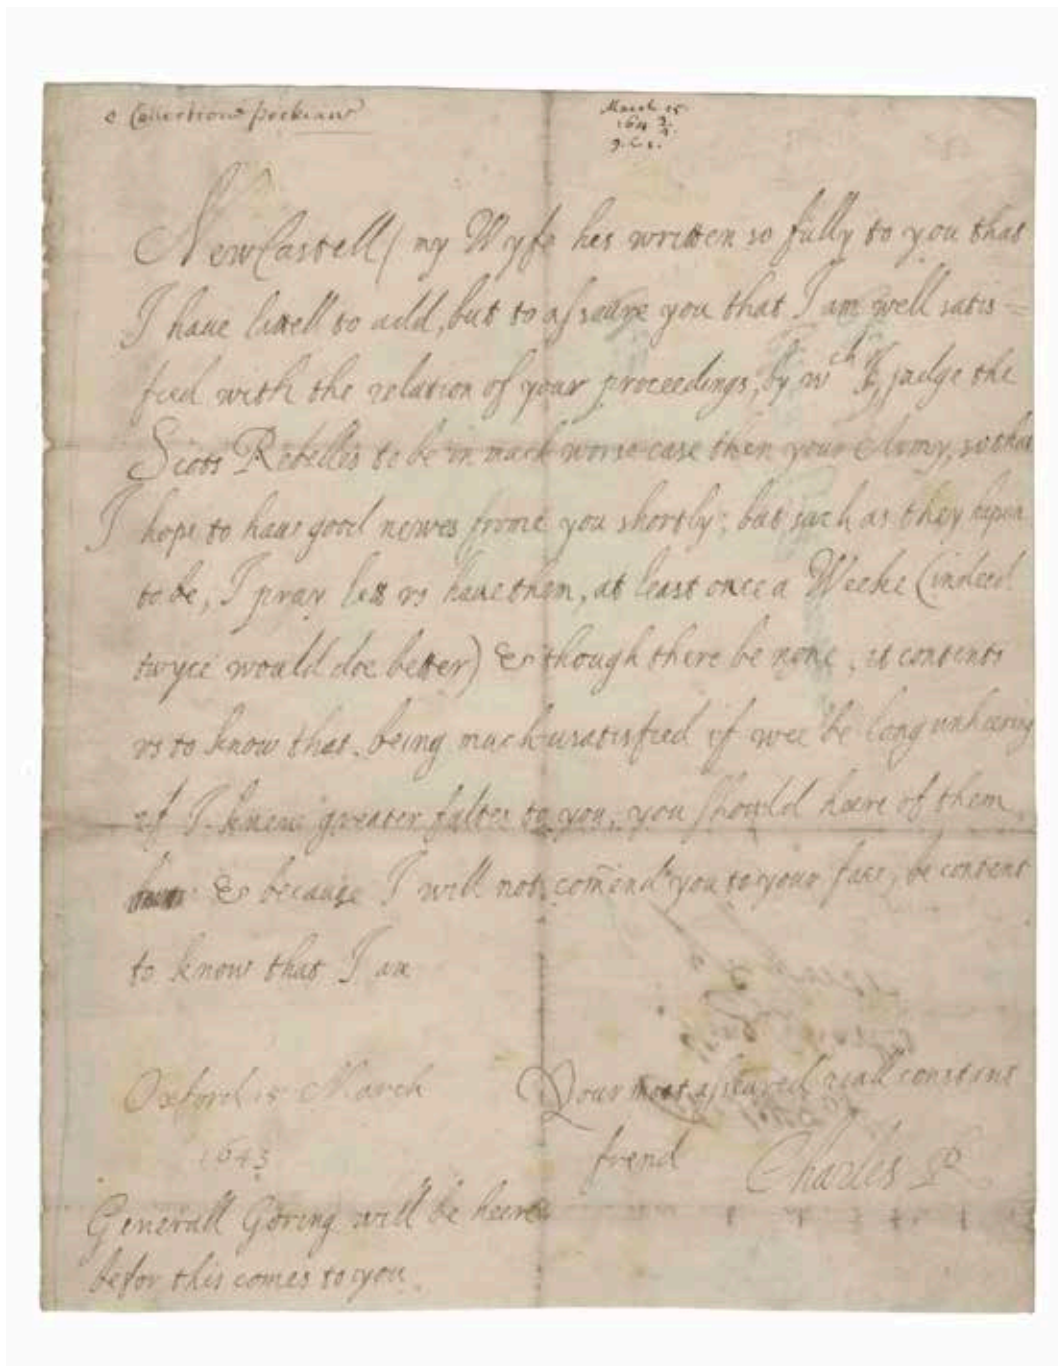 e Collectione peckiana
March 15
164 3/4
NewCastell( my Wyfe hes written so fully to you that
I haue littell to add, but to asseure you that I am well satis=
fied with the relation of your proceedings, by wch I judge the
Scots Rebelles to be in much worse case then your Army, so that
I hope to haue good newes frome you shortly; but such as they hapen
to be, I pray lett vs haue them, at least once a Weeke (indeed
twyce would doe better) & though there be none, it contents
vs to know that, being much unsatisfied if wee be long unheering
if I knew greater faltes to you, you should heere of them
& because I will not comend you to your face, be content
to know that I am
Oxford 15 March
1643
Your most asseured reall constant
frend
Charles R
Generall Goring will be heere
befor this comes to you.